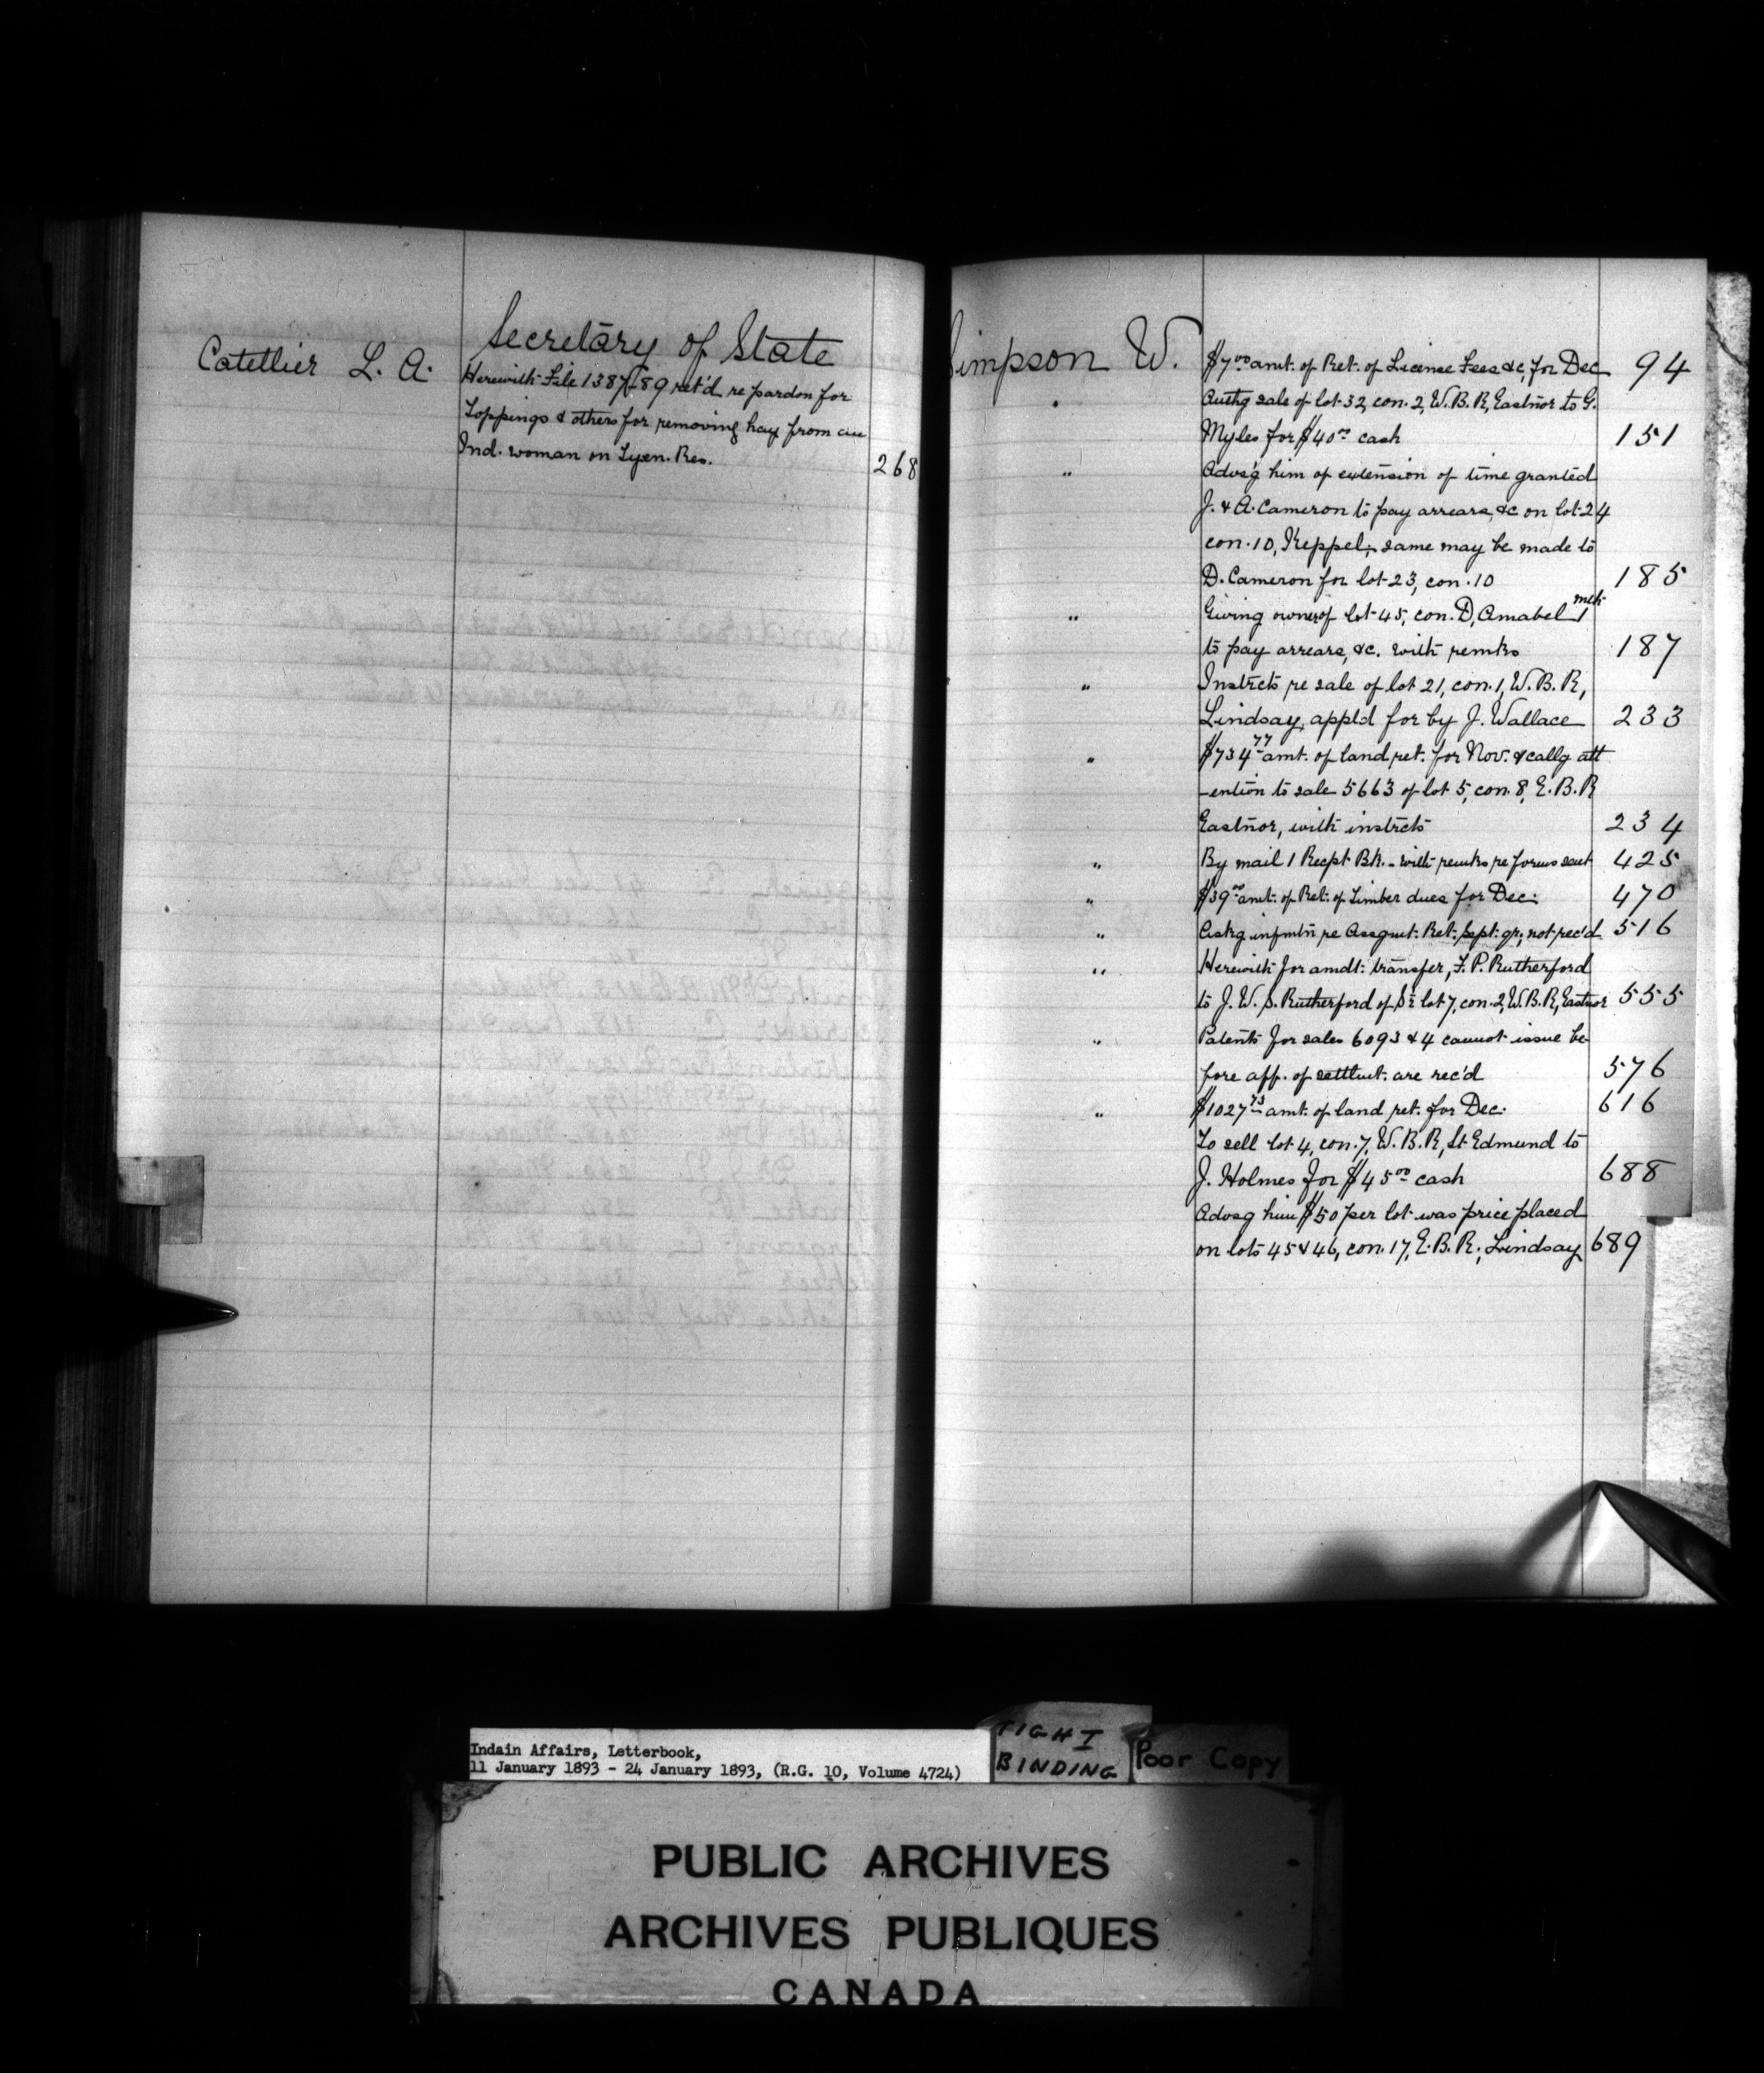 Secretary of State
Catellier L. A.
Herewith File 1387/89 ret'd re pardon for
Toppings & others for removing hay from an
Ind. woman on Tyen. Res. 268
Simpson W. $7.00 amt. of Ret. of License Fees &c, for Dec 94
" Authg sale of lot 32, con. 2, W. B. R, Eastnor to G.
Myles for $40.00 cash 151
" Advs'g him of extension of time granted
J. & A. Cameron to pay arrears, &c on lot 24
con. 10, Keppel; same may be made to
D. Cameron for lot 23, con. 10 185
" Giving owner of lot 45, con. D, Amabel 1 mth
to pay arrears, &c. with remks 187
" Instrcts re sale of lot 21, con. 1, W. B. R,
Lindsay, appld for by J. Wallace 233
" $734.77 amt. of land ret. for Nov. & callg att
-ention to sale 5663 of lot 5, con. 8, E. B. R
Eastnor, with instrcts 234
" By mail 1 Recpt Bk. - with remks re forms sent 425
" $39.00 amt. of Ret. of Timber dues for Dec. 470
" Askg infmtn re Assgmt. Ret. Sept. qr; not rec'd 516
" Herewith for amdt. transfer, F. P. Rutherford
to J. W. S. Rutherford of S½ lot 7, con. 2, W. B. R, Eastnor 555
" Patents for sales 6093 & 4 cannot issue be-
fore aff. of settlmt. are rec'd 576
" $1027.73 amt. of land ret. for Dec. 616
To sell lot 4, con. 7, W. B. R, St Edmund to
J. Holmes for $45.00 cash 688
Advsg him $50 per lot was price placed
on lots 45 & 46, con. 17, E. B. R; Lindsay 689
Indain Affairs, Letterbook,
11 January 1893 - 24 January 1893, (R.G. 10, Volume 4724)
TIGHT
BINDING
Poor Copy
PUBLIC ARCHIVES
ARCHIVES PUBLIQUES
CANADA